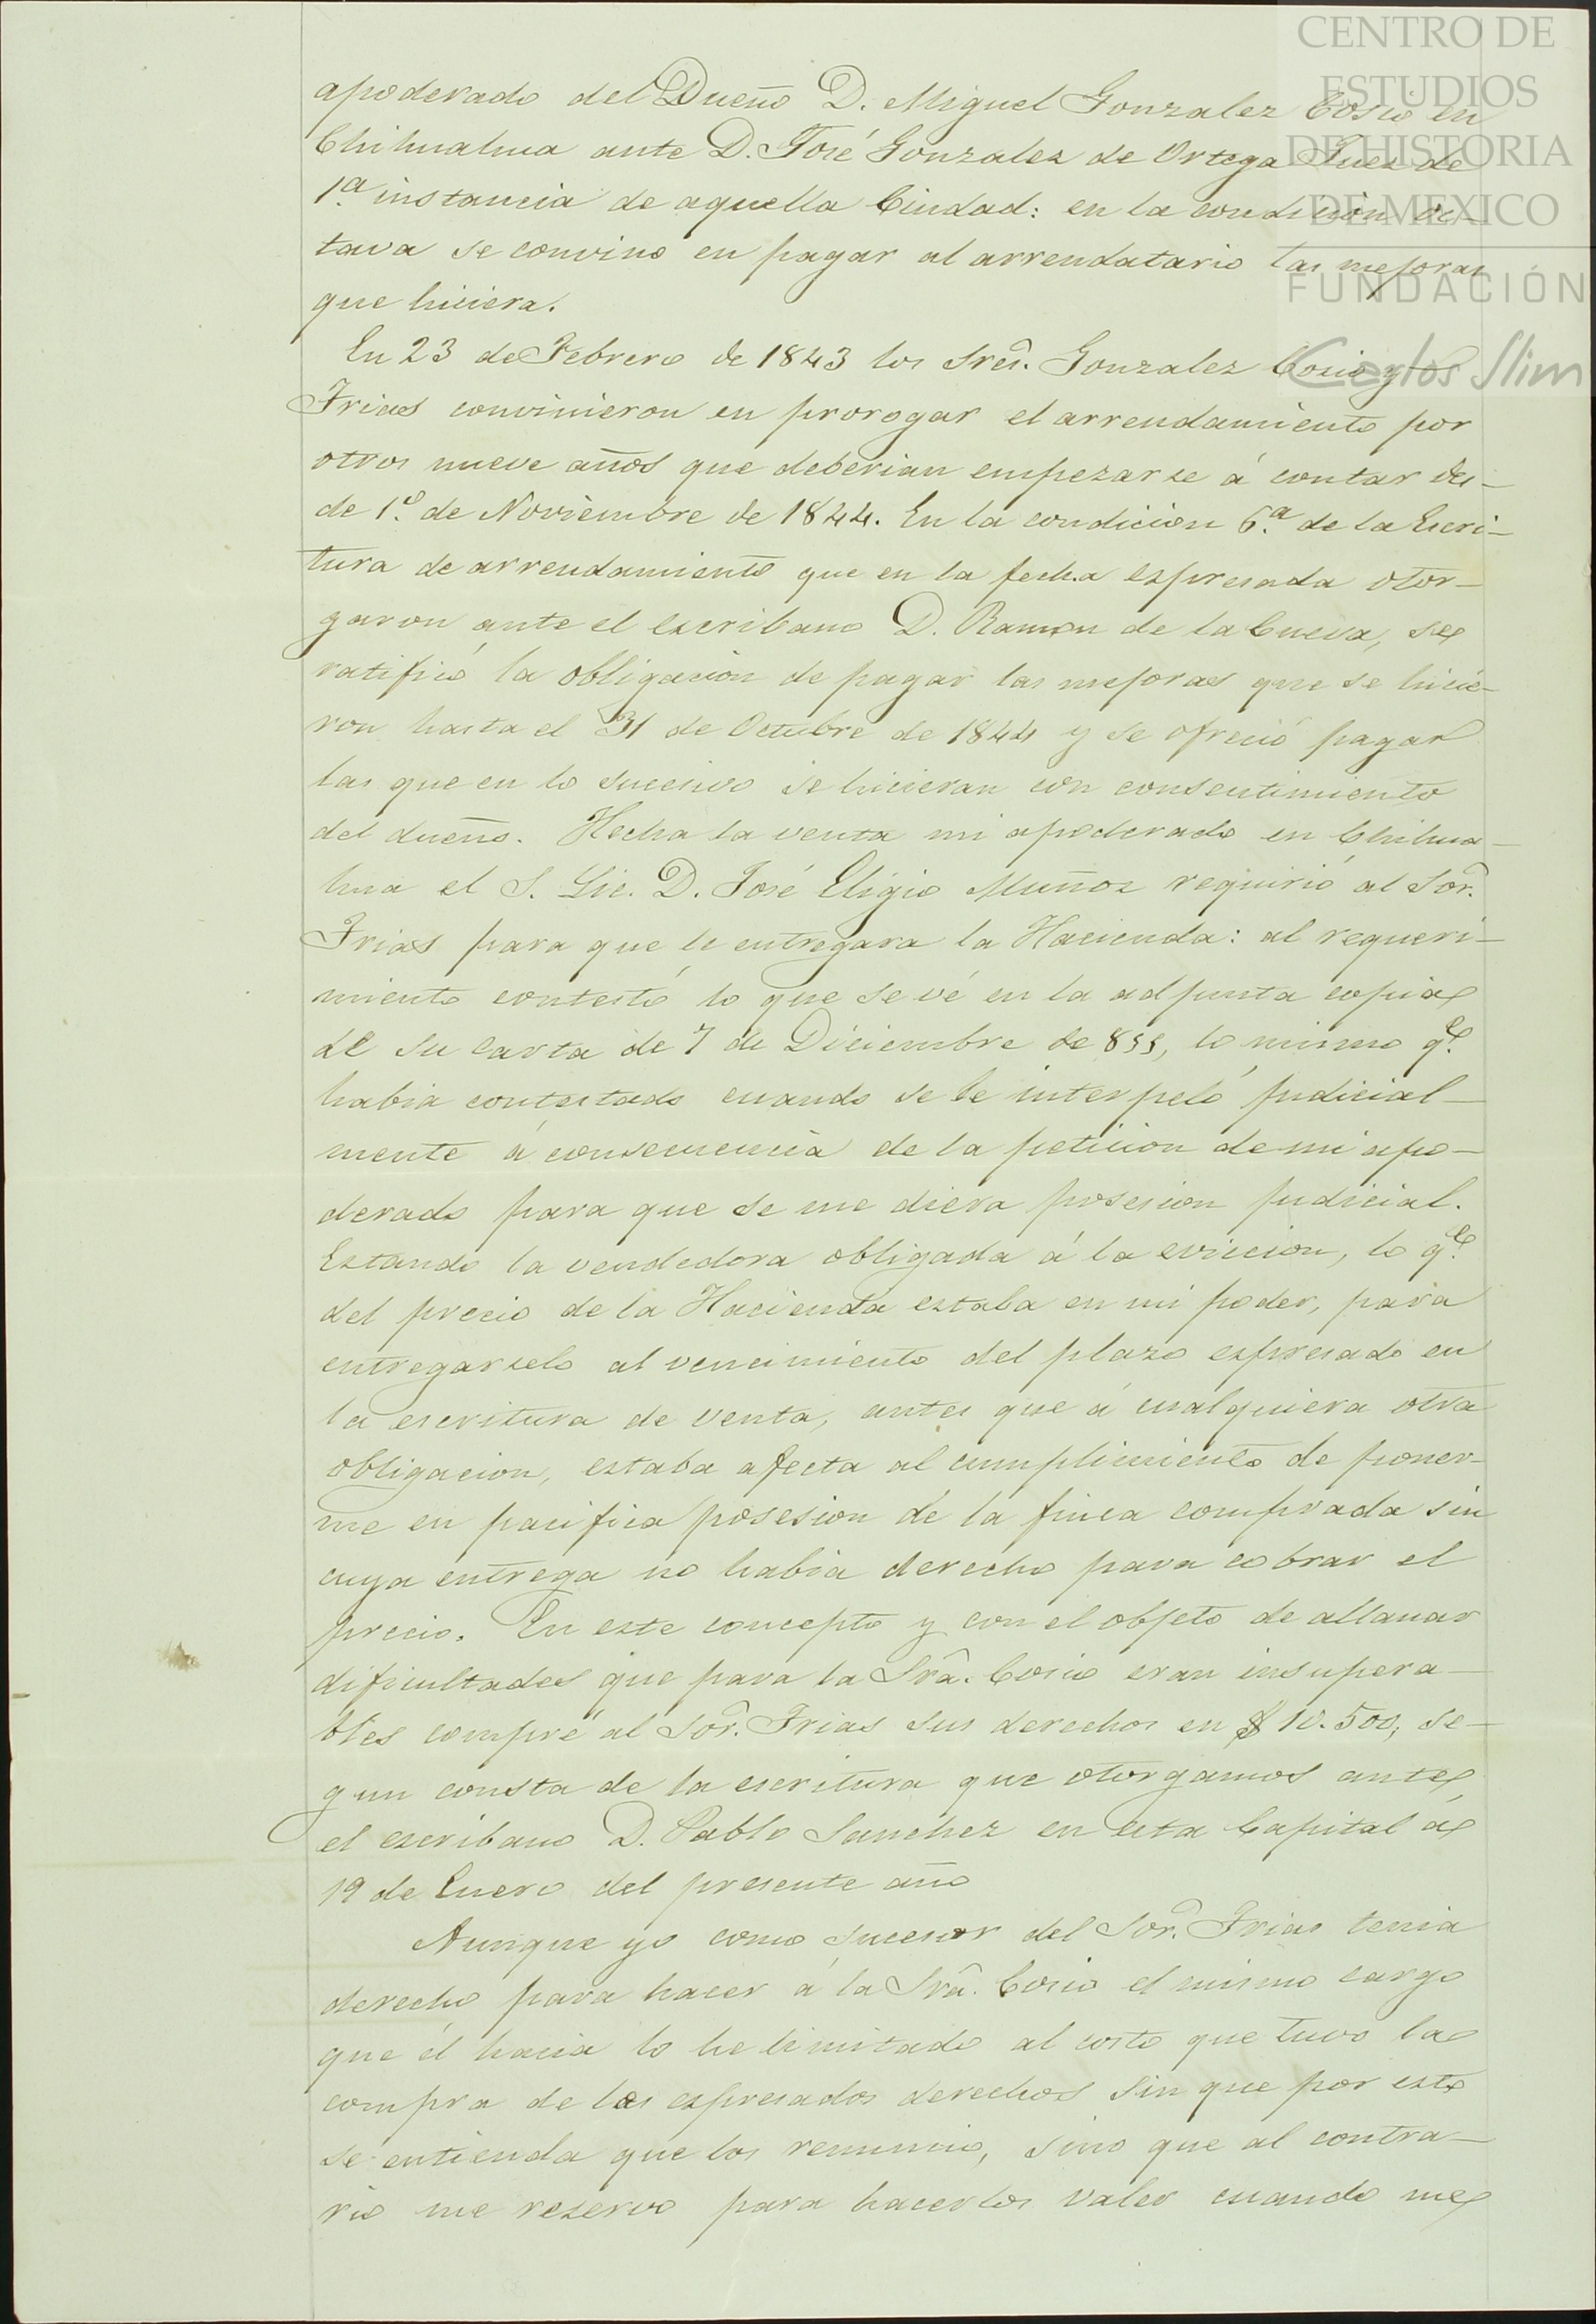 CENTRO DE
ESTUDIOS
DE HISTORIA
DE MEXICO
FUNDACIÓN
Carlos Slim
apoderado del Dueño D. Miguel Gonzalez Cosio en
Chihuahua ante D. José Gonzalez de Ortega Juez de
1.ª instancia de aquella Ciudad: en la condicion oc-
tava se convino en pagar al arrendatario las mejoras
que hiciera.
En 23 de Febrero de 1843 los Sres. Gonzalez Cosio y
Frias convinieron en prorogar el arrendamiento por
otros nueve años que deberian empezarse á contar des-
de 1.º de Noviembre de 1844. En la condicion 6.ª de la Escri-
tura de arrendamiento que en la fecha espresada otor-
garon ante el escribano D. Ramon de la Cueva, se
ratificó la obligacion de pagar las mejoras que se hicie-
ron hasta el 31 de Octubre de 1844 y se ofreció pagar
las que en lo sucesivo se hicieran con consentimiento
del dueño. Hecha la venta mi apoderado en Chihua-
hua el S. Lic. D. José Eligio Muñoz requirió al Sor.
Frias para que le entregara la Hacienda: al requeri-
miento contestó lo que se vé en la adjunta copia
de su carta de 7 de Diciembre de 855, lo mismo q.e
habia contestado cuando se le interpeló judicial-
mente á consecuencia de la peticion de mi apo-
derado para que se me diera posesion judicial.
Estando la vendedora obligada á la eviccion, lo q.e
del precio de la Hacienda estaba en mi poder, para
entregarselo al vencimiento del plazo espresado en
la escritura de venta, antes que á cualquiera otra
obligacion, estaba afecta al cumplimiento de poner-
me en pacifica posesion de la finca comprada sin
cuya entrega no habia derecho para cobrar el
precio. En este concepto y con el objeto de allanar
dificultades que para la Sra. Cosio eran insupera-
bles compré al Sor. Frias sus derechos en $ 10.500, se-
gun consta de la escritura que otorgamos ante
el escribano D. Pablo Sanchez en esta Capital á
19 de Enero del presente año
Aunque yo como sucesor del Sor. Frias tenia
derecho para hacer á la Sra. Cosio el mismo cargo
que él hacia lo he limitado al costo que tuvo la
compra de los espresados derechos sin que por esto
se entienda que los renuncio, sino que al contra-
rio me reservo para hacerlos valer cuando me